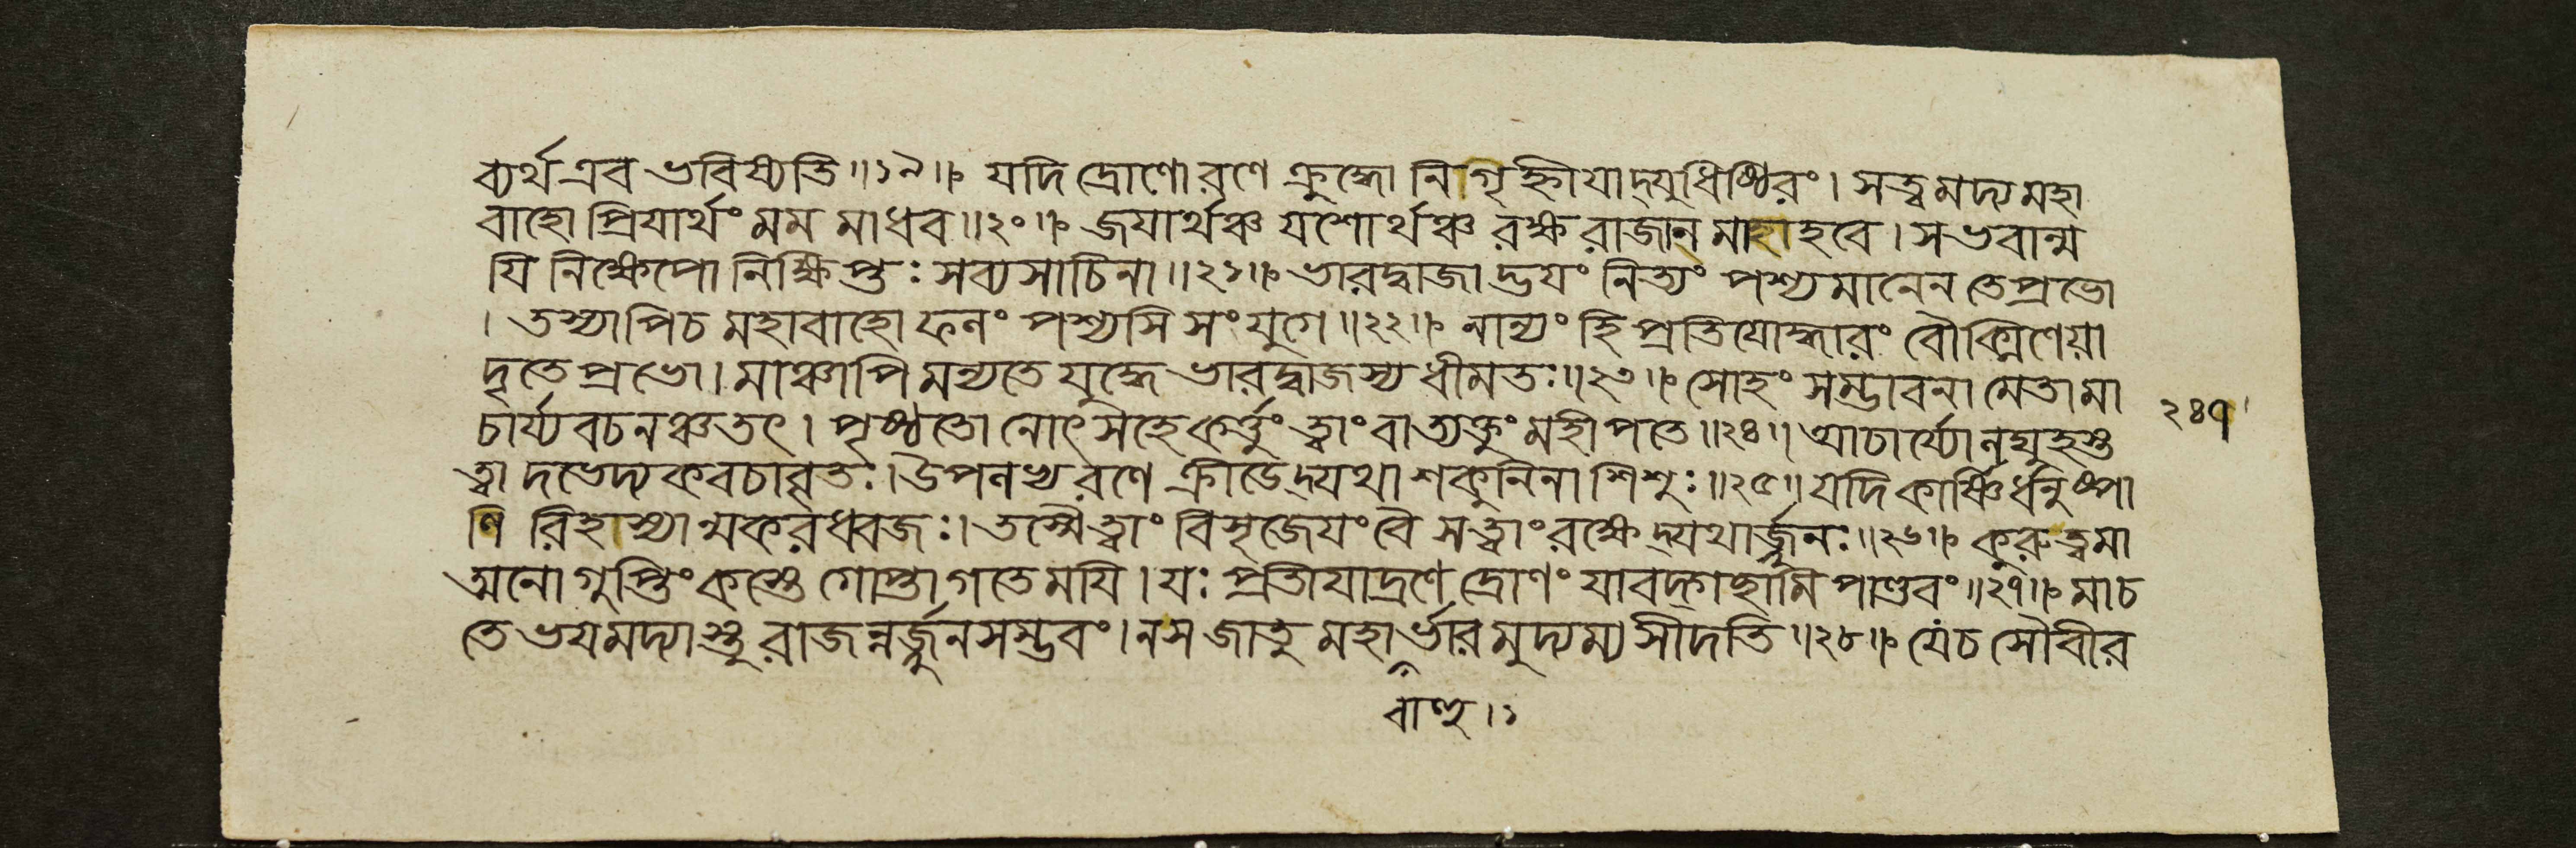 ব্যর্থ এব ভবিষ্যতি॥১৯॥ যদি দ্রোণো রণে ক্রুদ্ধো নিগৃহ্ণীযাদ্যুধিষ্ঠিরং। সত্ত্বমদ্য মহা
বাহো প্রিযার্থং মম মাধব॥২০॥ জযার্থঞ্চ যশোর্থঞ্চ রক্ষ রাজানমাহাহবে। স ভবান্ম
যি নিক্ষেপো নিক্ষিপ্তঃ সব্যসাচিনা॥২১॥ ভারদ্বাজাদ্ভযং নিত্যং পশ্যমানেন তে প্রভো
। তস্যাপি চ মহাবাহো ফনং পশ্যসি সংযুগে॥২২॥ নান্যং হি প্রতিযোদ্ধারং রৌক্মিণেয়া
দৃতে প্রভো। মাঞ্চাপি মন্যতে যুদ্ধে ভারদ্বাজস্য ধীমতঃ॥২৩॥ সোহং সম্ভাবনামেতামা
চার্য্যবচনঞ্চ তৎ। পৃষ্ঠতো নোৎসহে কর্ত্তুং ত্বাং বা ত্যক্তুং মহীপতে॥২৪॥ আচার্য্যো
ত্বাদভেদ্যকবচাবৃতঃ। উপলভ্য রণে ক্রীডেদ্যথা শকুনিনা শিশুঃ॥২৫॥ যদি কার্ষ্ণির্ধনুষ্পা
ণিরিহাস্যান্মকরধ্বজঃ। তস্মৈ ত্বাং বিসৃজেযং বৈ স ত্বাং রক্ষেদ্যথার্জ্জুনঃ॥২৬॥ কুরু ত্বমা
ত্মনো গুপ্তিং কস্তে গোপ্তা গতে মযি। যঃ প্রতীযাদ্রণে দ্রোণং যাবদ্গচ্ছামি পাণ্ডবং॥২৭॥ মা চ
তে ভযমদ্যাস্তু রাজন্নর্জ্জুনসম্ভবং। ন স জাতু মহার্ভারমুদ্যম্য সীদতি॥২৮॥ যে চ সৌবীর
২৪৭
বাহু।১